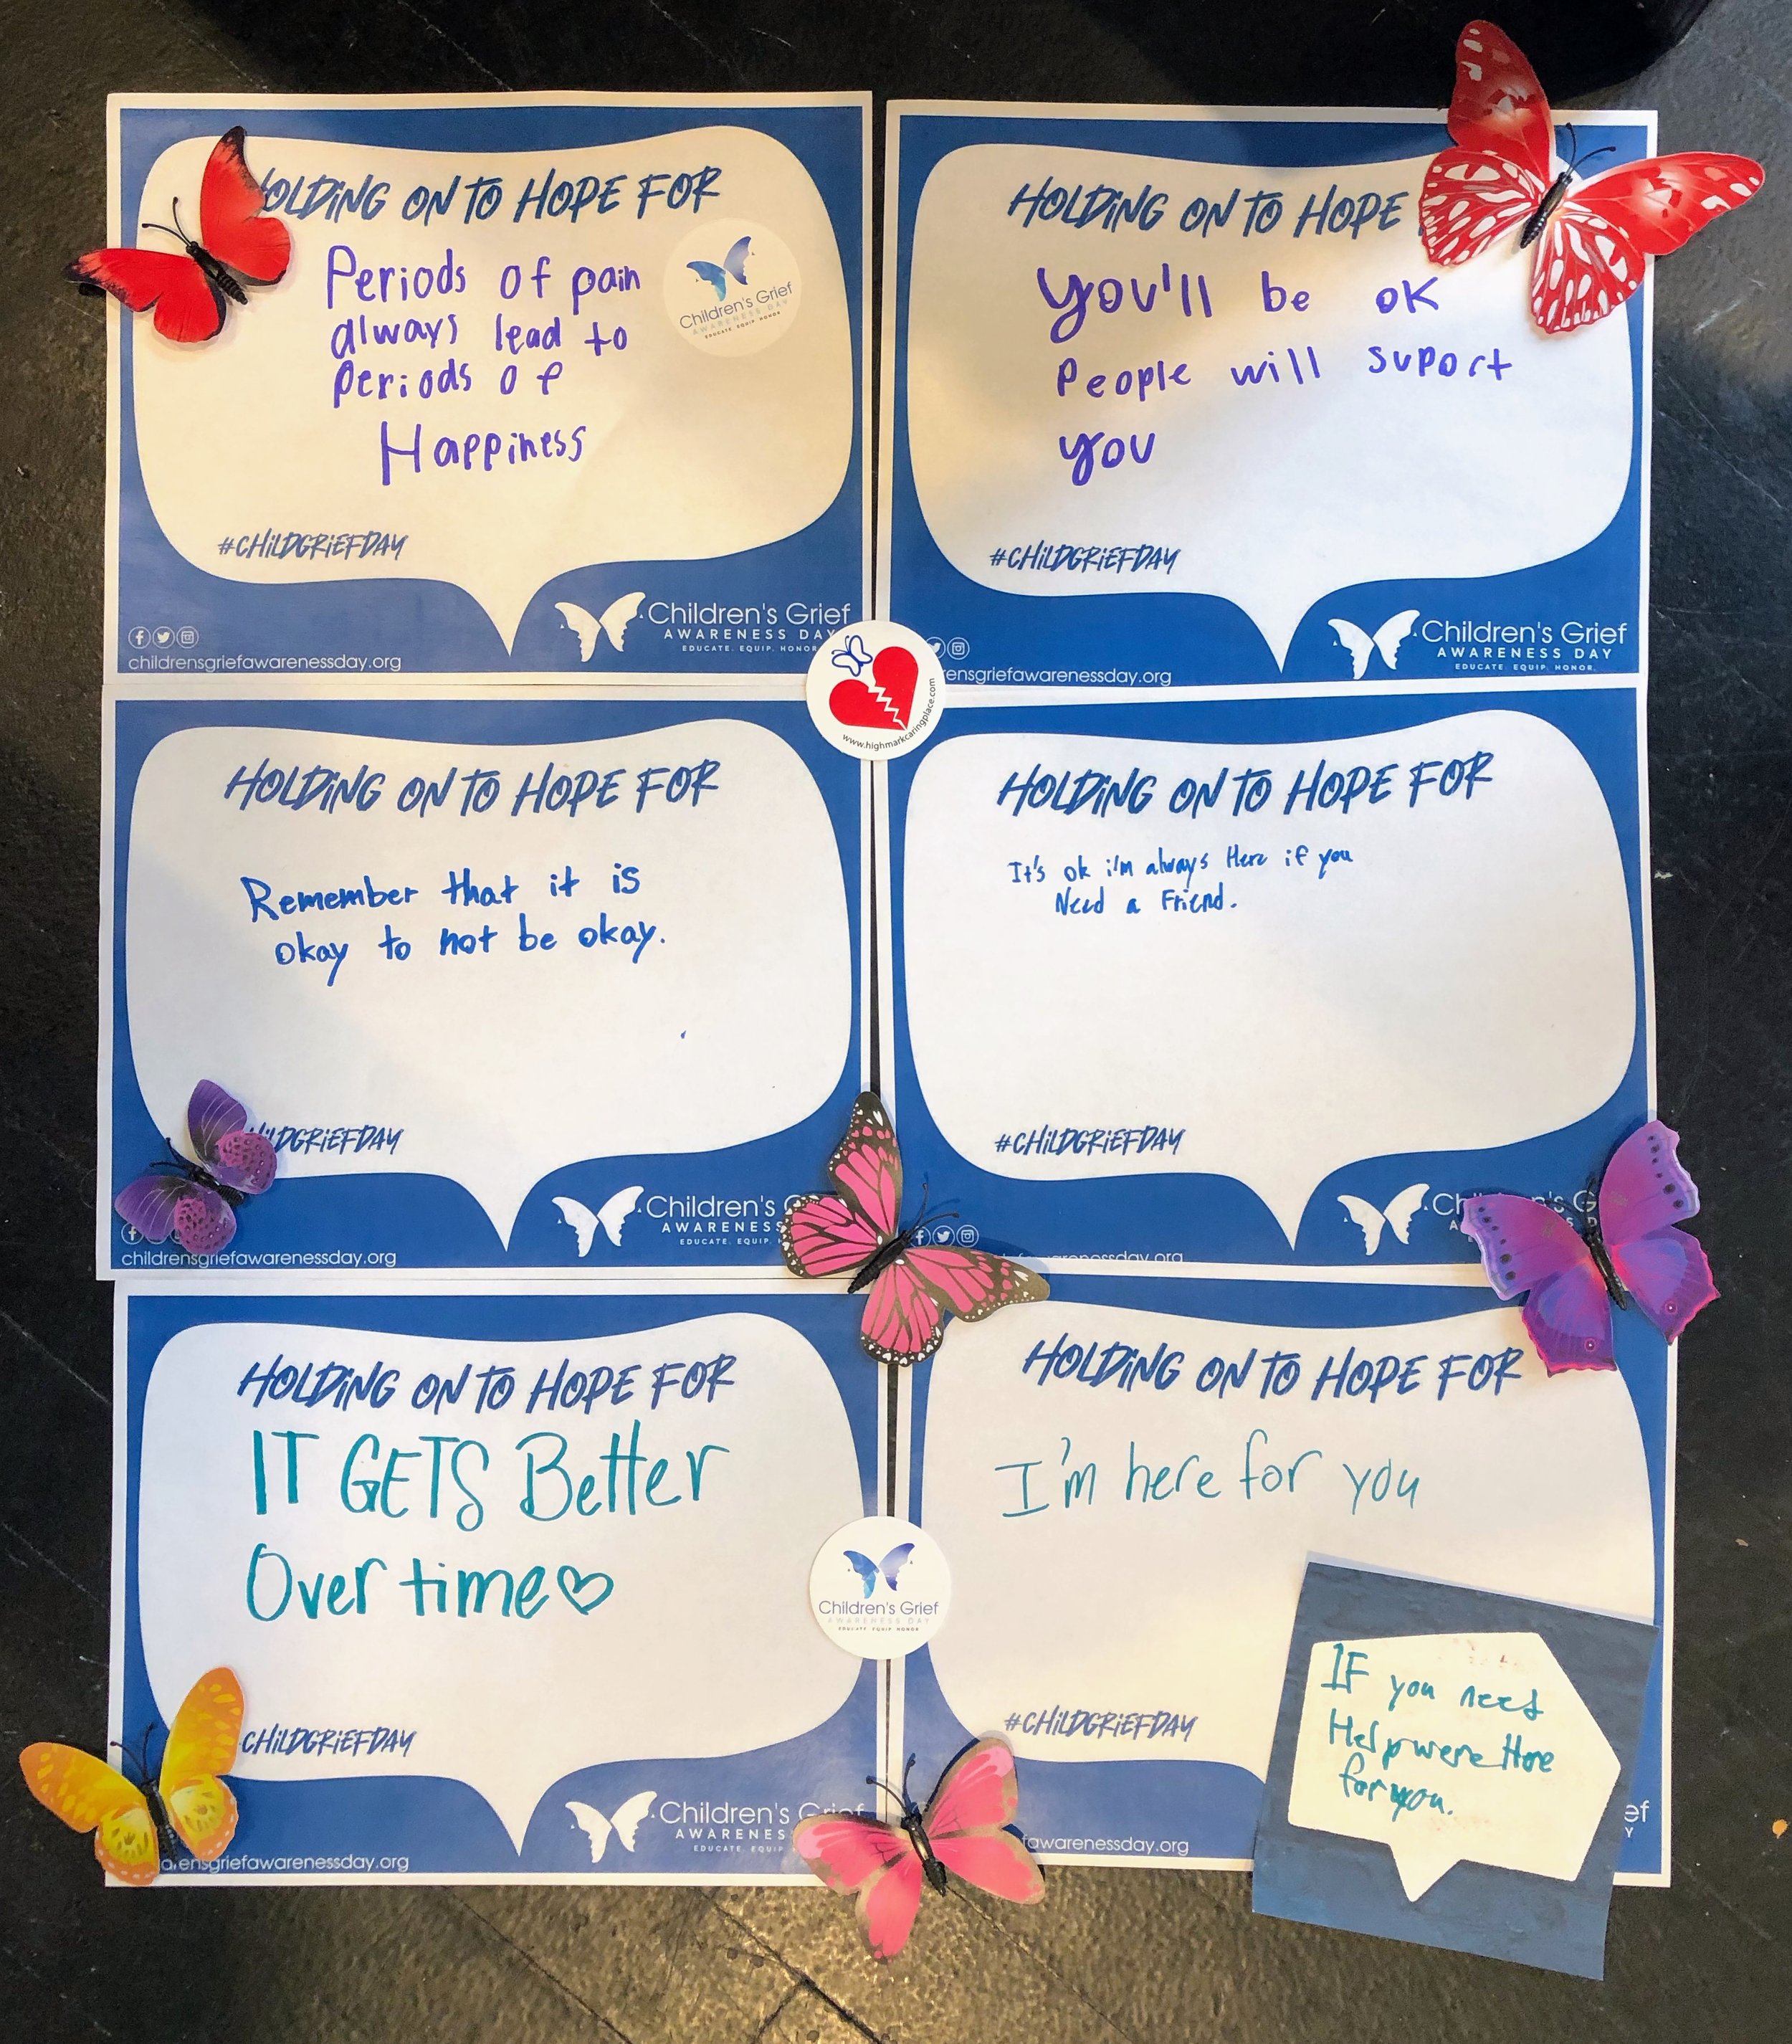 OLDING ON TO HOPE FOR
Periods of pain
always lead to
periods of
Happiness
Children's Grief
AWARENESS DAY
EDUCATE. EQUIP. HONOR.
#CHILDGRIEFDAY
Children's Grief
AWARENESS DAY
EDUCATE. EQUIP. HONOR
childrensgriefawarenessday.org
HOLDING ON TO HOPE
you'll be ok
People will suport
you
#CHILDGRIEFDAY
Children's Grief
AWARENESS DAY
EDUCATE. EQUIP. HONOR.
ensgriefawarenessday.org
www.highmarkcaringplace.com
HOLDING ON TO HOPE FOR
Remember that it is
okay to not be okay.
ILDGRIEFDAY
Children's G
AWARENESS
EDUCATE. EQUIP.
childrensgriefawarenessday.org
HOLDING ON TO HOPE FOR
It's ok i'm always Here if you
Need a Friend.
#CHILDGRIEFDAY
HOLDING ON TO HOPE FOR
IT GETS Better
Over time♡
CHILDGRIEFDAY
Children's Grief
AWARENES
EDUCATE. EQUIP
rensgriefawarenessday.org
Children's Grief
AWARENESS DAY
EDUCATE. EQUIP. HONOR
HOLDING ON TO HOPE FOR
I'm here for you
#CHILDGRIEFDAY
awarenessday.org
ef
Y
IF you need
Help were Here
for you.